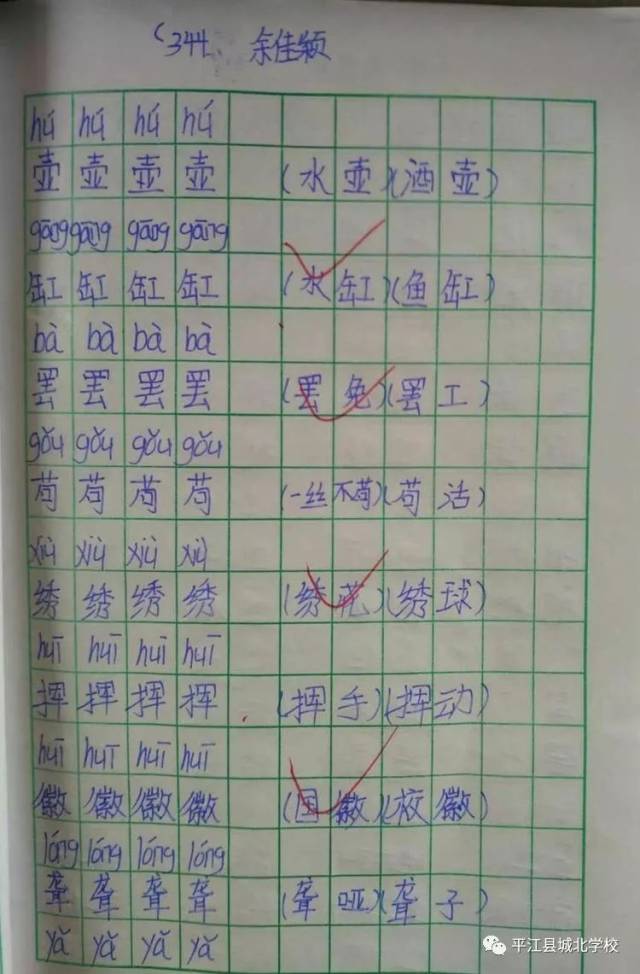 344、 余佳颖
hú hú hú hú
壶 壶 壶 壶 (水壶)(酒壶)
gāng gāng gāng gāng
缸 缸 缸 缸 (水缸)(鱼缸)
bà bà bà bà
罢 罢 罢 罢 (罢免)(罢工)
gǒu gǒu gǒu gǒu
苟 苟 苟 苟 (一丝不苟)(苟活)
xiù xiù xiù xiù
绣 绣 绣 绣 (绣花)(绣球)
huī huī huī huī
挥 挥 挥 挥 (挥手)(挥动)
huī huī huī huī
徽 徽 徽 徽 (国徽)(校徽)
lóng lóng lóng lóng
聋 聋 聋 聋 (聋哑)(聋子)
yǎ yǎ yǎ yǎ
平江县城北学校